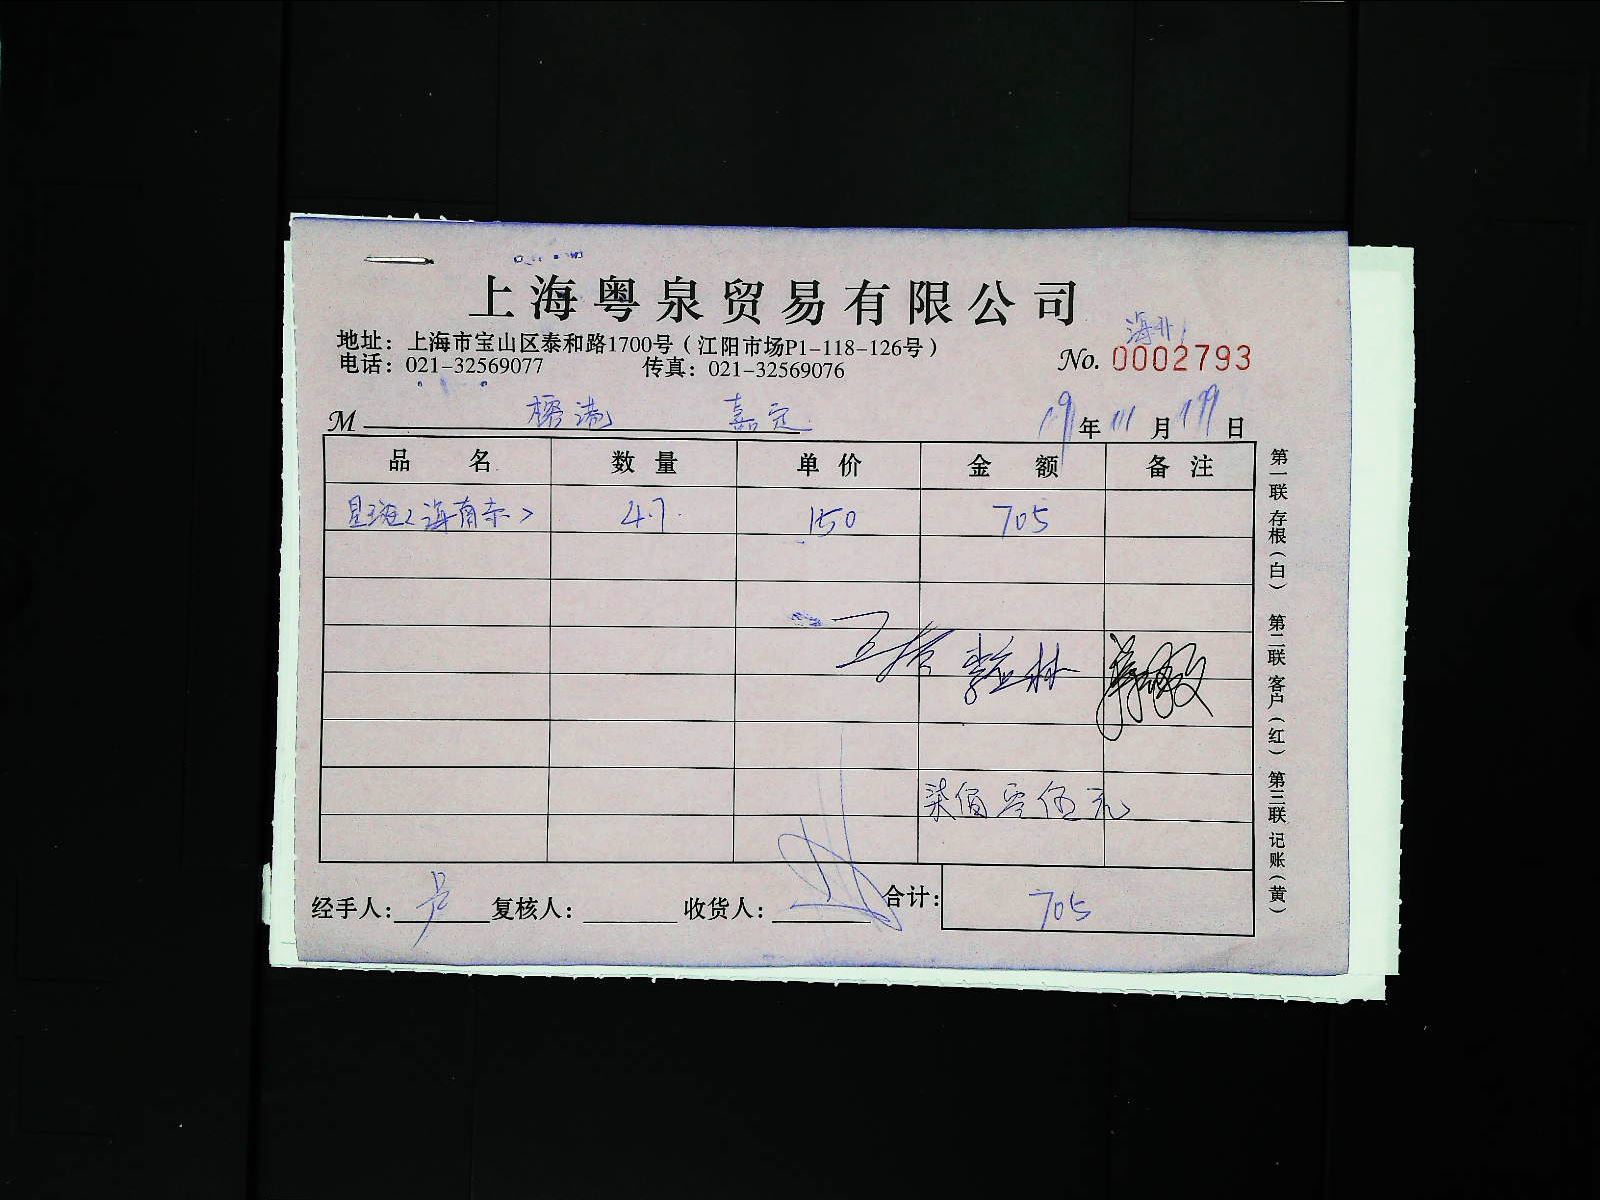 上海粤泉贸易有限公司
地址：上海市宝山区泰和路1700号（江阳市场P1-118-126号）
电话：021-32569077 传真：021-32569076
No. 0002793
M 嘉定
19年11月19日
品名 数量 单价 金额 备注
星斑<海南东> 4.7 150 705
柒佰零伍元
经手人： 复核人： 收货人： 合计： 705
第一联 存根（白） 第二联 客户（红） 第三联 记账（黄）